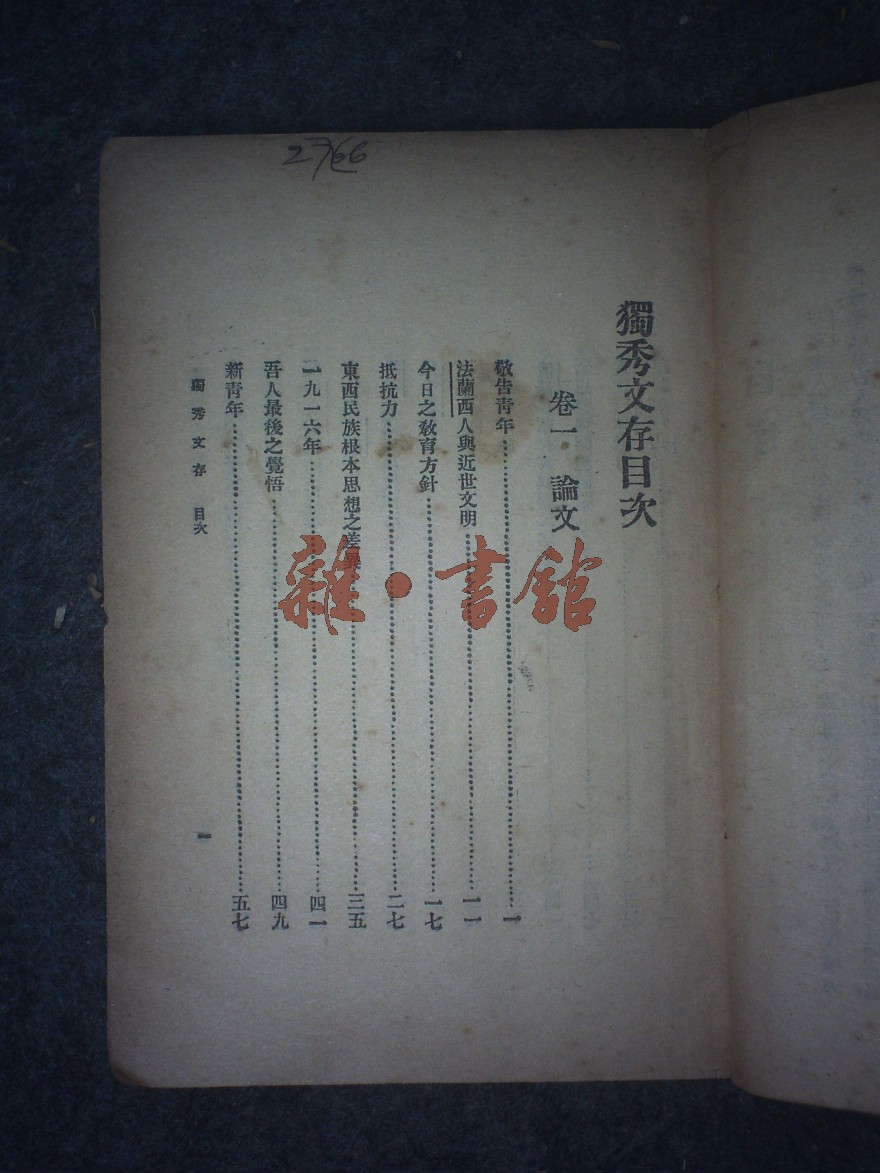 2766
獨秀文存目次
卷一 論文
敬告青年……一
法蘭西人與近世文明……一一
今日之教育方針……一七
抵抗力……二七
東西民族根本思想之差異……三五
一九一六年……四一
吾人最後之覺悟……四九
新青年……五七
獨秀文存 目次
一
雜·書舘